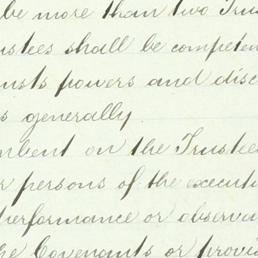 be more than two Trus
ustees shall be competen
usts powers and disc
s generally.
mbent on the Trustee
r persons of the executi
performance or observa
the Covenants or provis